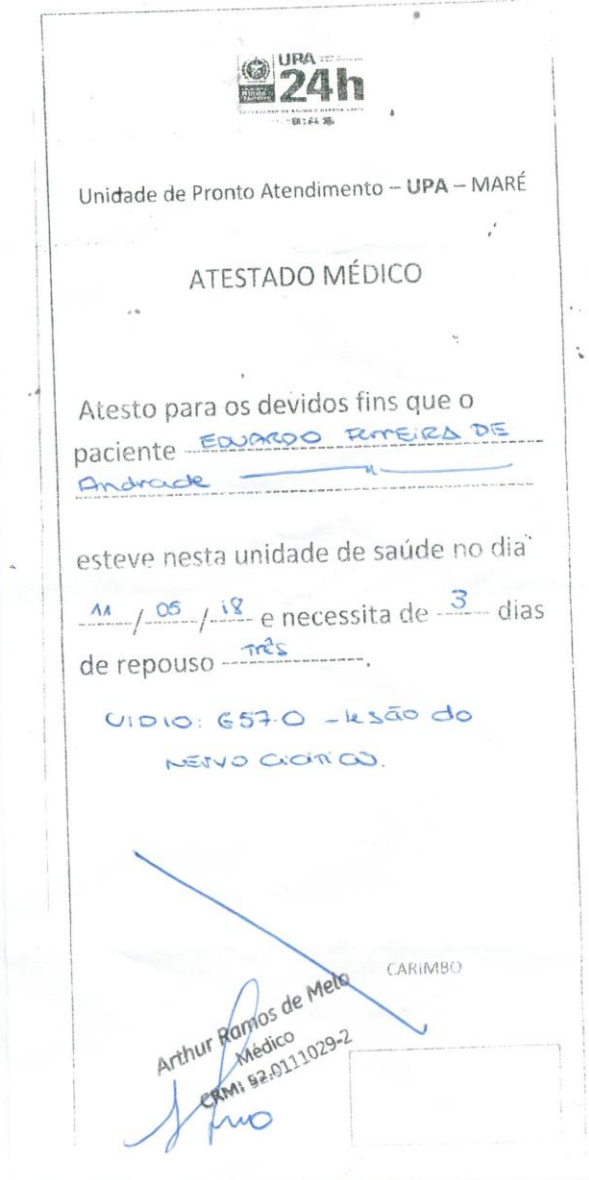 UPA
24h
Unidade de Pronto Atendimento – UPA – MARÉ
ATESTADO MÉDICO
Atesto para os devidos fins que o
paciente EDUARDO FERREIRA DE
Andrade
esteve nesta unidade de saúde no dia
11 / 05 / 18 e necessita de 3 dias
de repouso três.
CID10: G57.0 - lesão do
NERVO CIÁTICO.
CARIMBO
Arthur Ramos de Melo
Médico
CRM: 52.0111029-2